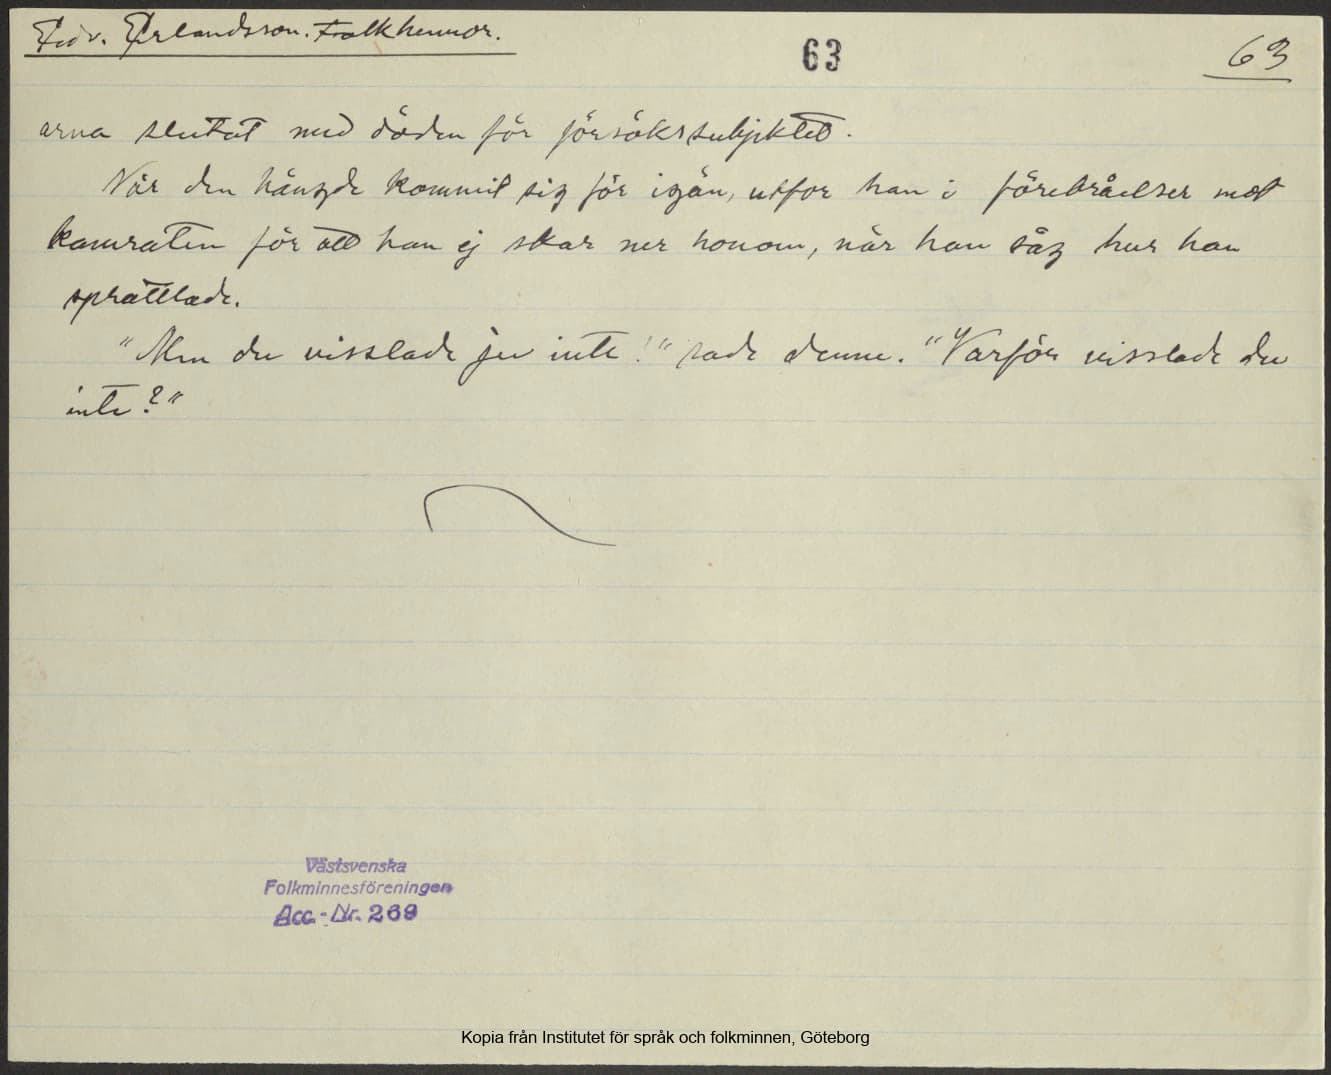 Edv. Erlandsson. Folkhumor.
63
63
arna slutat med döden för försökssubjektet.
När den hängde kommit sig för igän, utfor han i förebråelser mot
kamraten för att han ej skar ner honom, när han såg hur han
sprattlade.
"Men du visslade ju inte!" sade denne. "Varför visslade du
inte?"
Västsvenska
Folkminnesföreningen
Acc.-Nr. 269
Kopia från Institutet för språk och folkminnen, Göteborg